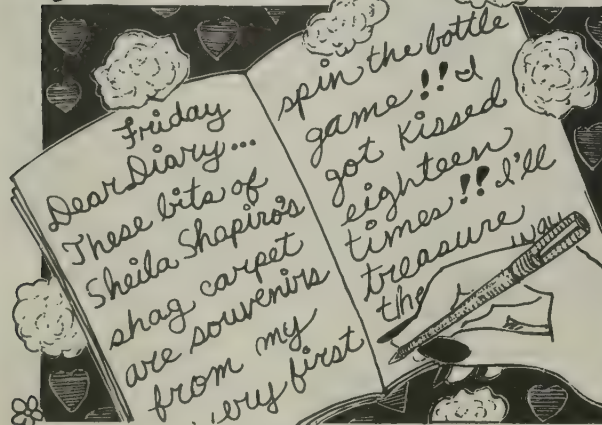 Friday
Dear Diary...
These bits of
Sheila Shapiro's
shag carpet
are souvenirs
from my
very first
spin the bottle
game!! I
got kissed
eighteen
times!! I'll
treasure
the